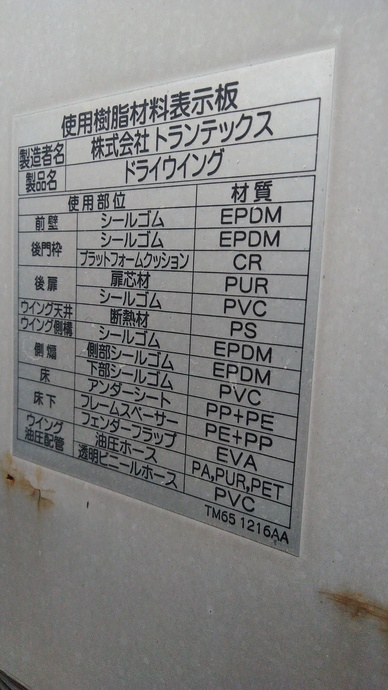 使用樹脂材料表示板
製造者名 株式会社 トランテックス
製品名 ドライウイング
使用部位 材質
前壁 シールゴム EPDM
後門枠 シールゴム EPDM
プラットフォームクッション CR
後扉 扉芯材 PUR
シールゴム PVC
ウイング天井 断熱材 PS
ウイング側構 シールゴム EPDM
側煽 側部シールゴム EPDM
下部シールゴム PVC
床 アンダーシート PP+PE
床下 フレームスペーサー PE+PP
フェンダーフラップ EVA
ウイング 油圧ホース PA,PUR,PET
油圧配管 透明ビニールホース PVC
TM65 1216AA